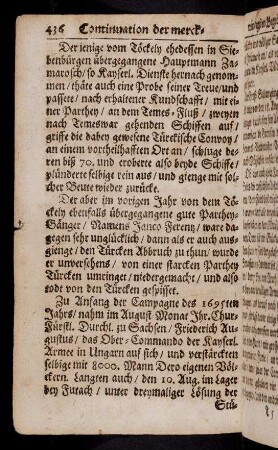 436 Continuation der merck-
Der jenige vom Töckely ehedessen in Sie-
benbürgen übergegangene Hauptmann Za-
marosch/ so Kayserl. Dienste hernach genom-
men / thäte auch eine Probe seiner Treue/ und
passete / nach erhaltener Kundschafft / mit ei-
ner Parthey / an dem Temes-Fluß / zweyen
nach Temeswar gehenden Schiffen auf /
griffe die dabey gewesene Türckische Convoy /
an einem vortheilhafften Ort an / schluge de-
ren biß 70. und eroberte also beyde Schiffe/
plünderte selbige rein aus / und gienge mit sol-
cher Beute wieder zurücke.
Der aber im vorigen Jahr von dem Tö-
ckely ebenfalls übergegangene gute Parthey-
Gänger / Namens Janco Ferentz / ware da-
gegen sehr unglücklich / dann als er auch aus-
gienge / den Türcken Abbruch zu thun / wurde
er unversehens / von einer starcken Parthey
Türcken umringet / niedergemacht / und also
todt von den Türcken gespisset.
Zu Anfang der Campagne des 1695ten
Jahrs / nahm im August Monat Ihr. Chur-
Fürstl. Durchl. zu Sachsen / Friederich Au-
gustus / das Ober-Commando der Kayserl.
Armee in Ungarn auf sich / und verstärckten
selbige mit 8000. Mann Dero eigenen Völ-
ckern. Langten auch / den 10. Aug. im Lager
bey Futach / unter dreymaliger Lösung der
Stü-